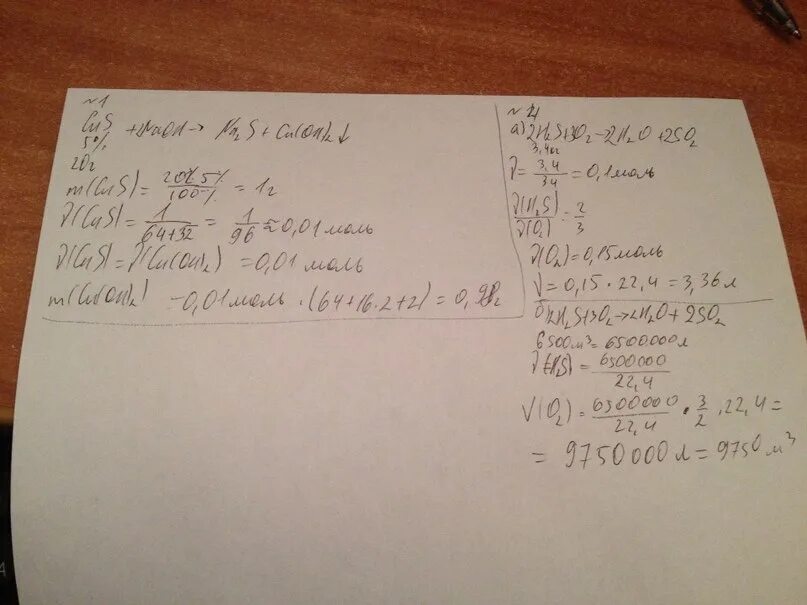 №1
CuS + 2NaOH → Na₂S + Cu(OH)₂↓
5%
20г
m(CuS) = 20·5% / 100% = 1г
ν(CuS) = 1 / 64+32 = 1 / 96 ≈ 0,01 моль
ν(CuS) = ν(Cu(OH)₂) = 0,01 моль
m(Cu(OH)₂) = 0,01 моль · (64+16·2+2) = 0,98г
№4
а) 2H₂S+3O₂→2H₂O+2SO₂
3,4г
ν = 3,4 / 34 = 0,1 моль
ν(H₂S) / ν(O₂) = 2 / 3
ν(O₂) = 0,15 моль
V = 0,15 · 22,4 = 3,36 л
б) 2H₂S+3O₂→2H₂O+2SO₂
6500м³ = 6500000л
ν(H₂S) = 6500000 / 22,4
V(O₂) = 6500000 / 22,4 · 3 / 2 · 22,4 =
= 9750000 л = 9750 м³